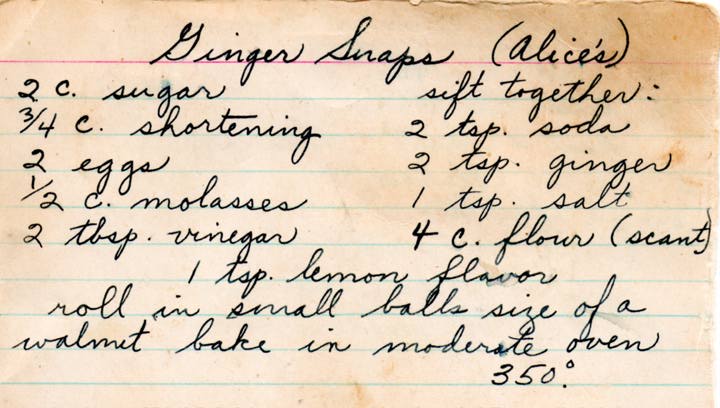 Ginger Snaps (Alice's)
2 c. sugar sift together:
3/4 c. shortening 2 tsp. soda
2 eggs 2 tsp. ginger
1/2 c. molasses 1 tsp. salt
2 tbsp. vinegar 4 c. flour (scant)
1 tsp. lemon flavor
roll in small balls size of a
walnut bake in moderate oven
350°.